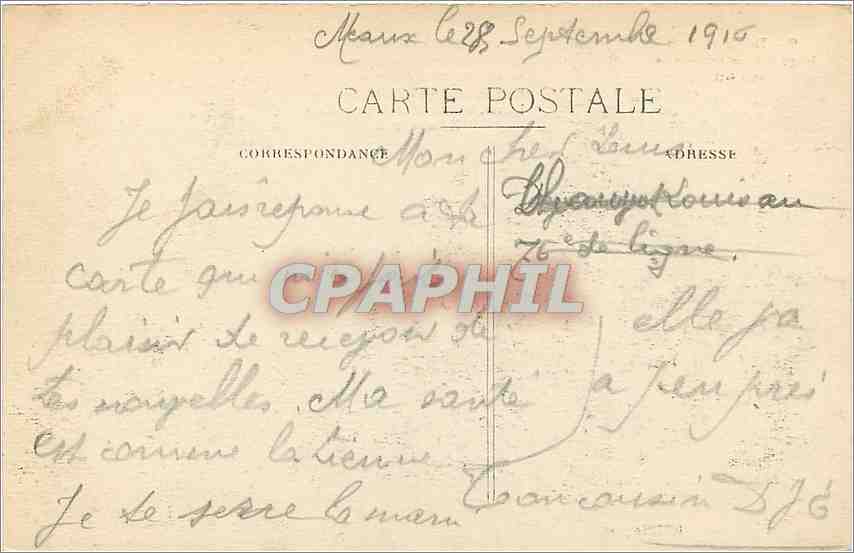 Meaux le 28 Septembre 1916
CARTE POSTALE
CORRESPONDANCE
ADRESSE
Mon cher Louis
Je fais reponse a ta
76e de ligne.
carte que
CPAPHIL
plaisir de recevoir de
tes nouvelles. Ma santé
est comme la tienne
elle va
a peu près
Je te serre la main
Ton cousin D J E